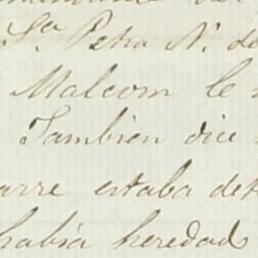 Sra Petra N. de
Malcom le
Tambien dice
arre estaba det
habia heredado